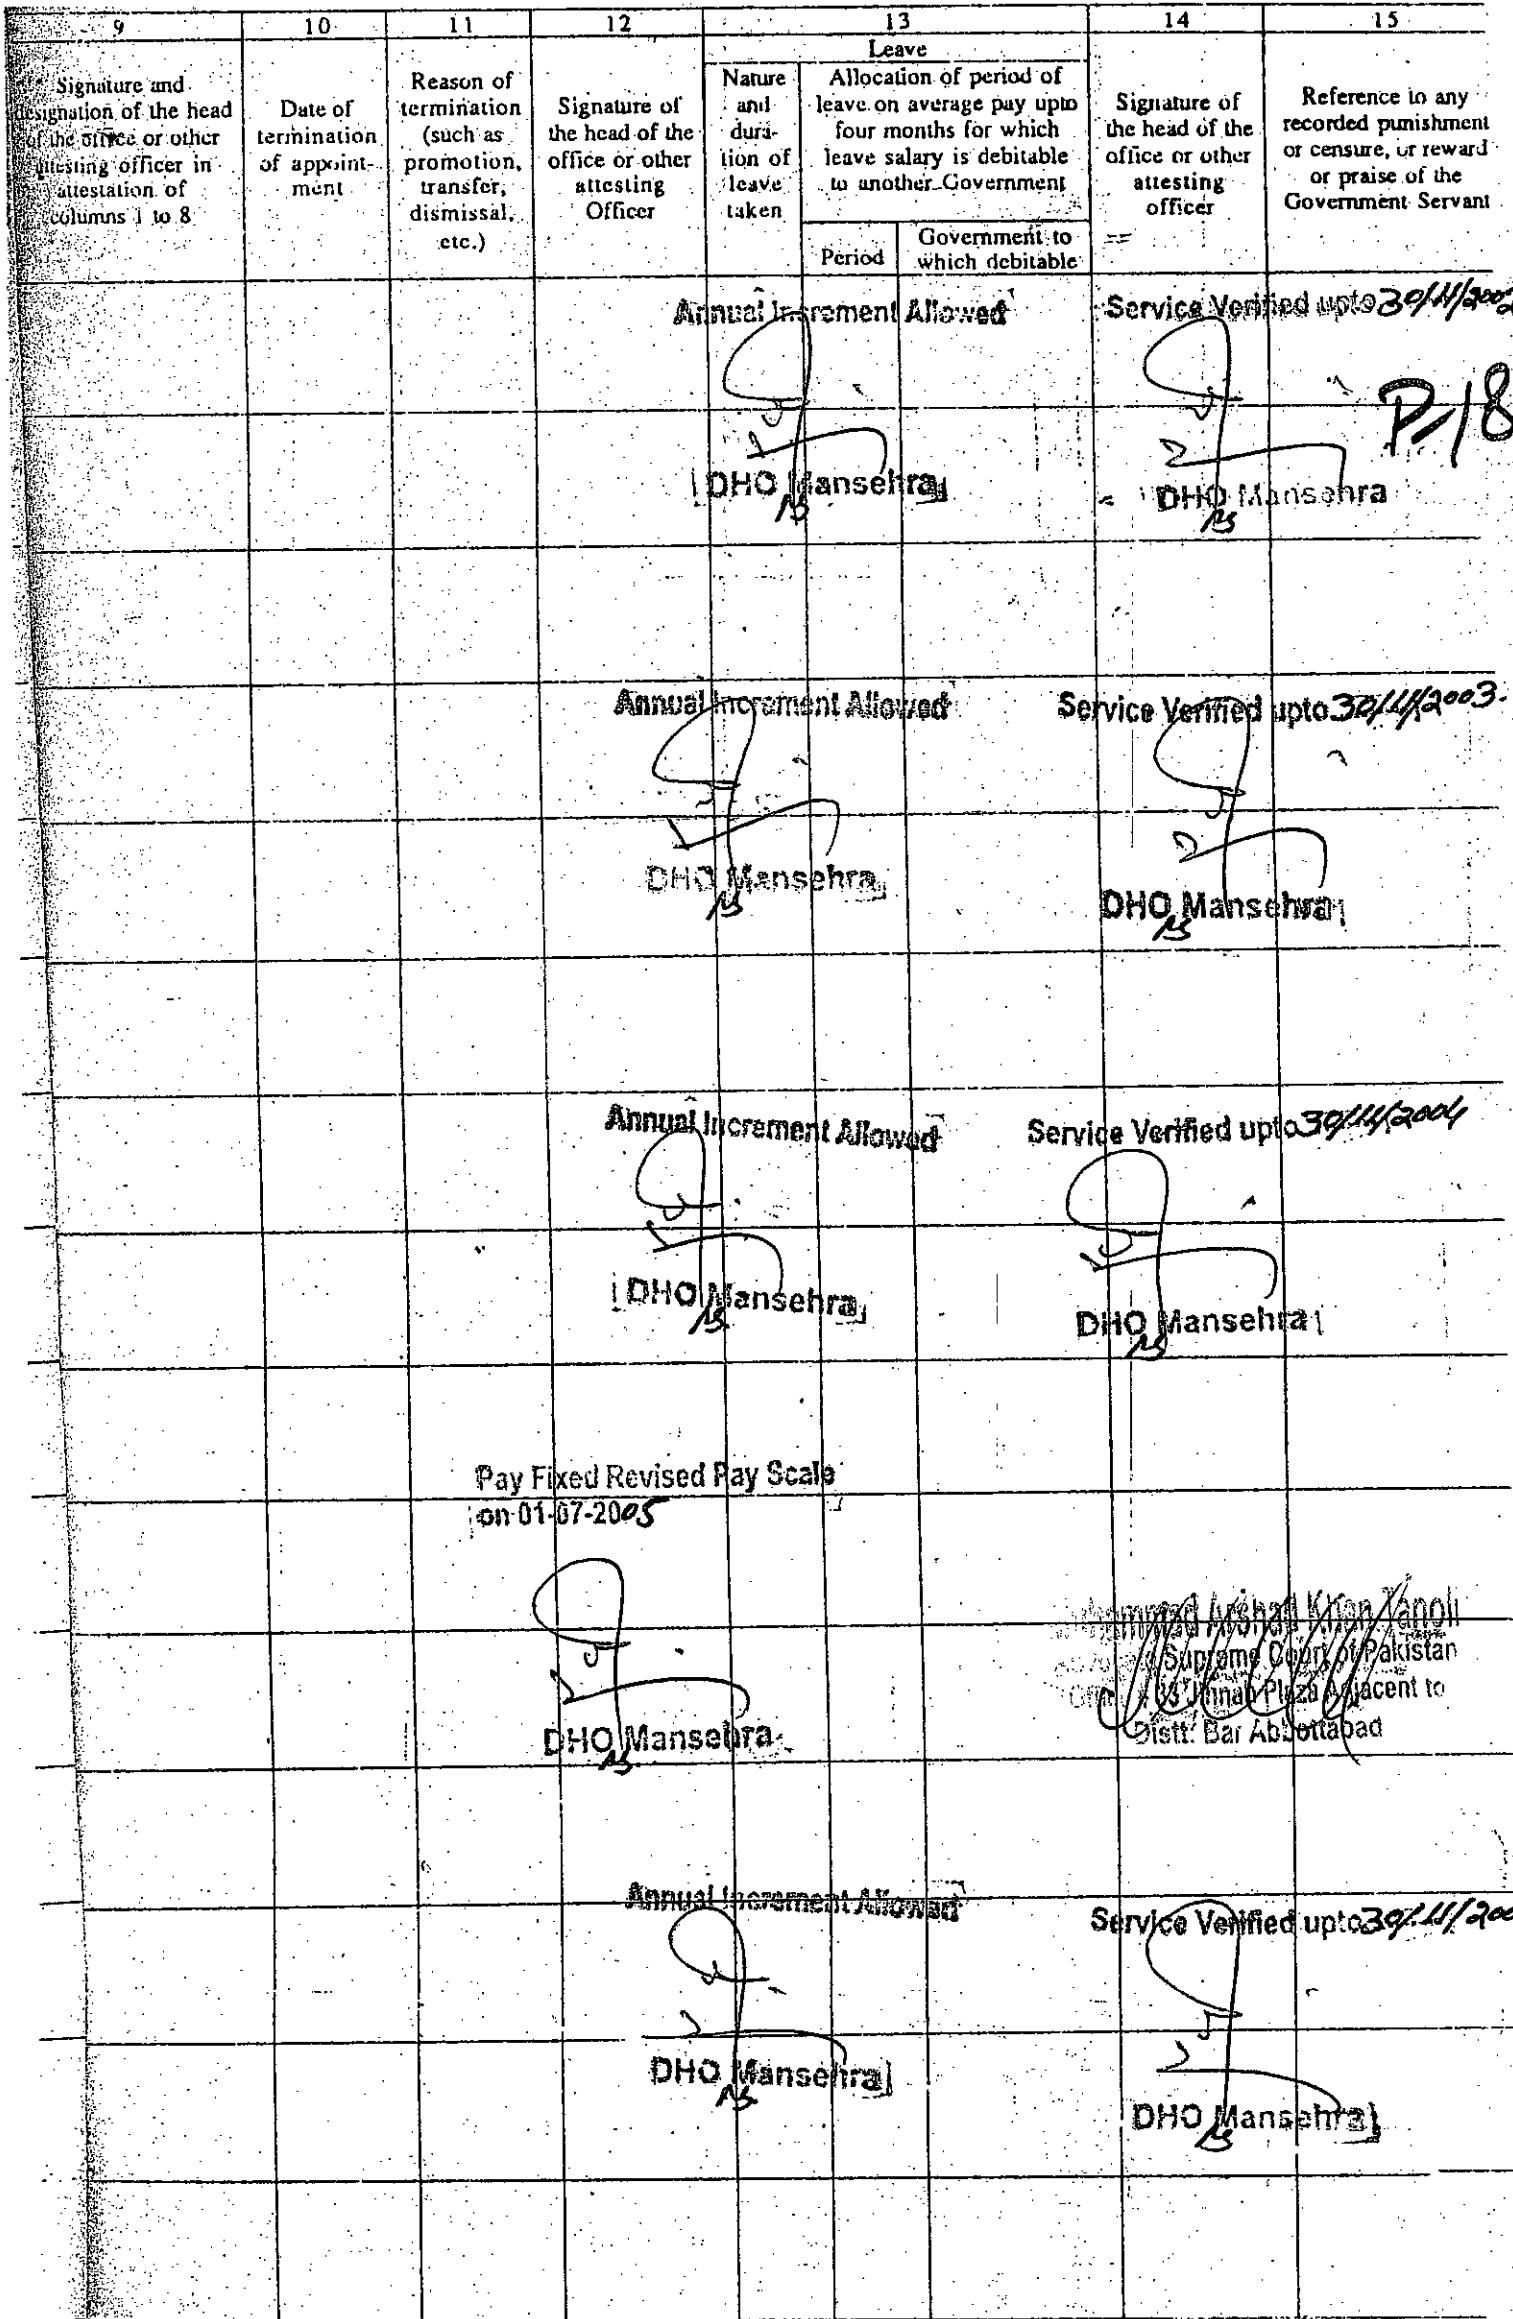 9 10 11 12 13 14 15
Signature and
designation of the head
of the office or other
attesting officer in
attestation of
columns 1 to 8
Date of
termination
of appoint-
ment
Reason of
termination
(such as
promotion,
transfer,
dismissal,
etc.)
Signature of
the head of the
office or other
attesting
Officer
Leave
Nature
and
dura-
tion of
leave
taken
Allocation of period of
leave on average pay upto
four months for which
leave salary is debitable
to another Government
Period
Government to
which debitable
Signature of
the head of the
office or other
attesting
officer
Reference to any
recorded punishment
or censure, or reward
or praise of the
Government Servant
Annual Increment Allowed
Service Verified upto 30/11/2002
P-18
DHO Mansehra
DHO Mansehra
Annual Increment Allowed
Service Verified upto 30/11/2003.
DHO Mansehra
DHO Mansehra
Annual Increment Allowed
Service Verified upto 30/11/2004
DHO Mansehra
DHO Mansehra
Pay Fixed Revised Pay Scale
on 01-07-2005
DHO Mansehra
Arshad Khan Tanoli
Supreme Court of Pakistan
Jinnah Plaza Adjacent to
Distt: Bar Abbottabad
Annual Increment Allowed
Service Verified upto 30/11/200
DHO Mansehra
DHO Mansehra